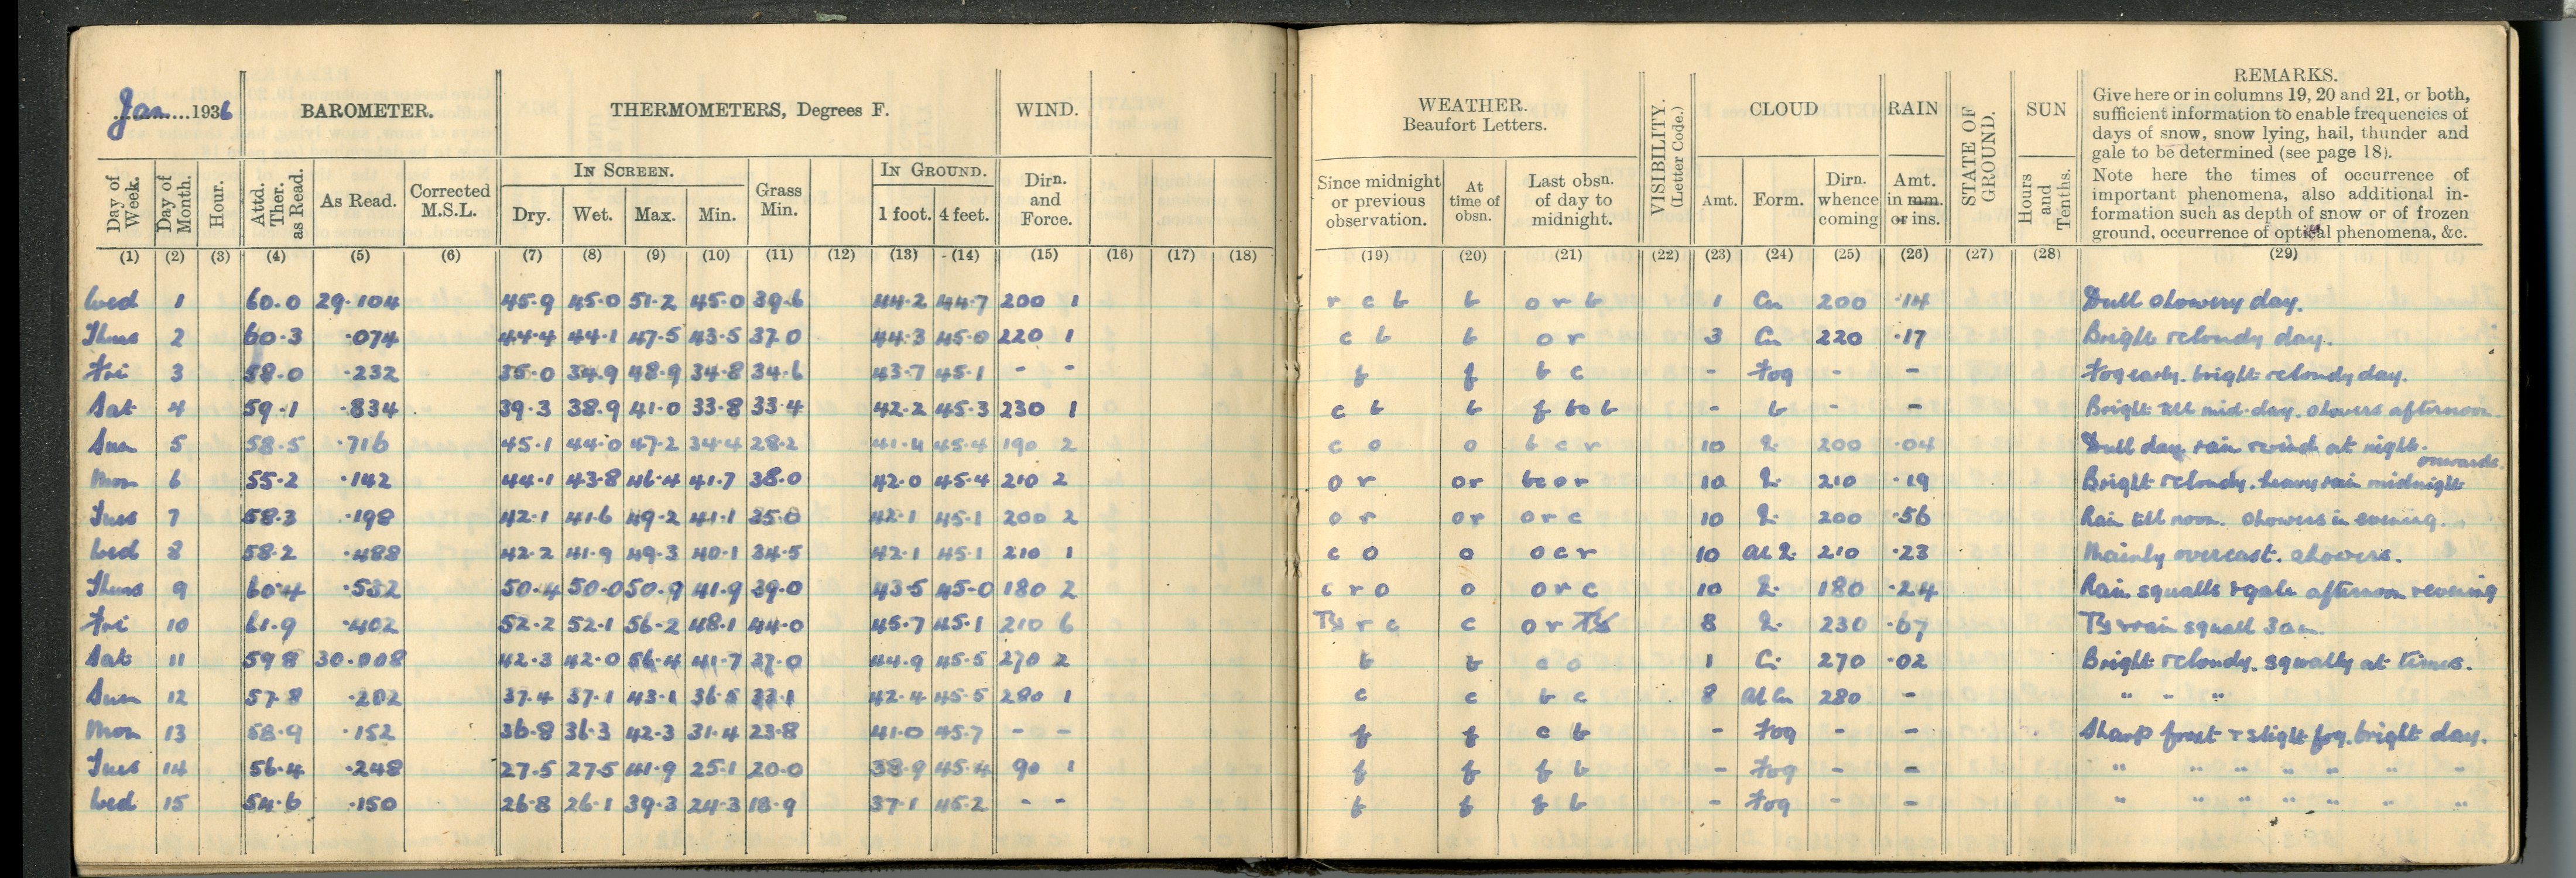 Jan 1936 BAROMETER. THERMOMETERS, Degrees F. WIND. WEATHER. Beaufort Letters. VISIBILITY. (Letter Code.) CLOUD RAIN STATE OF GROUND. SUN REMARKS.
Give here or in columns 19, 20 and 21, or both,
sufficient information to enable frequencies of
days of snow, snow lying, hail, thunder and
gale to be determined (see page 18).
Note here the times of occurrence of
important phenomena, also additional in-
formation such as depth of snow or of frozen
ground, occurrence of optical phenomena, &c.
Day of Week. Day of Month. Hour. Attd. Ther. as Read. As Read. Corrected M.S.L. IN SCREEN. Dry. Wet. Max. Min. Grass Min. IN GROUND. 1 foot. 4 feet. Dirn. and Force. Since midnight or previous observation. At time of obsn. Last obsn. of day to midnight. Amt. Form. Dirn. whence coming Amt. in mm. or ins. Hours and Tenths.
(1) (2) (3) (4) (5) (6) (7) (8) (9) (10) (11) (12) (13) (14) (15) (16) (17) (18) (19) (20) (21) (22) (23) (24) (25) (26) (27) (28) (29)
Wed 1 60.0 29.104 45.9 45.0 51.2 45.0 39.6 44.2 44.7 200 1 r c b b o r b 1 Cu 200 .14 Dull showery day.
Thurs 2 60.3 .074 44.4 44.1 47.5 43.5 37.0 44.3 45.0 220 1 c b b o r 3 Cu 220 .17 Bright & cloudy day.
Fri 3 58.0 .232 35.0 34.9 48.9 34.8 34.6 43.7 45.1 - - f f b c - Fog - - Fog early. bright & cloudy day.
Sat 4 59.1 .834 39.3 38.9 41.0 33.8 33.4 42.2 45.3 230 1 c b b f bo b - b - - Bright till mid-day. showers afternoon.
Sun 5 58.5 .716 45.1 44.0 47.2 34.4 28.2 41.4 45.4 190 2 c o o b c r 10 200 .04 Dull day. rain & wind at night.
Mon 6 55.2 .142 44.1 43.8 46.4 41.7 38.0 42.0 45.4 210 2 o r or bc o r 10 210 .19 Bright & cloudy. heavy rain midnight onwards.
Tues 7 58.3 .198 42.1 41.6 49.2 41.1 35.0 42.1 45.1 200 2 o r or o r c 10 200 .56 Rain till noon. Showers in evening.
Wed 8 58.2 .488 42.2 41.9 49.3 40.1 34.5 42.1 45.1 210 1 c o o o c r 10 210 .23 Mainly overcast. showers.
Thurs 9 60.4 .532 50.4 50.0 50.9 41.9 39.0 43.5 45.0 180 2 c r o o o r c 10 180 .24 Rain squalls & gale afternoon & evening
Fri 10 61.9 .402 52.2 52.1 56.2 48.1 44.0 45.7 45.1 210 6 Ts r c c o r 8 230 .67 Ts & rain squall 3am.
Sat 11 59.8 30.008 42.3 42.0 56.4 41.7 37.0 44.9 45.5 270 2 b b c o 1 Ci 270 .02 Bright & cloudy. squally at times.
Sun 12 57.8 .202 37.4 37.1 43.1 36.5 33.1 42.4 45.5 280 1 c c b c 8 Al Cu 280 - " " "
Mon 13 58.9 .152 36.8 36.3 42.3 31.4 23.8 41.0 45.7 - - f f c b - Fog - - Sharp frost & slight fog. bright day.
Tues 14 56.4 .248 27.5 27.5 41.9 25.1 20.0 38.9 45.4 90 1 f f f b - Fog - - " " " " " " "
Wed 15 54.6 .150 26.8 26.1 39.3 24.3 18.9 37.1 45.2 - - f f f b - Fog - - " " " " " " "